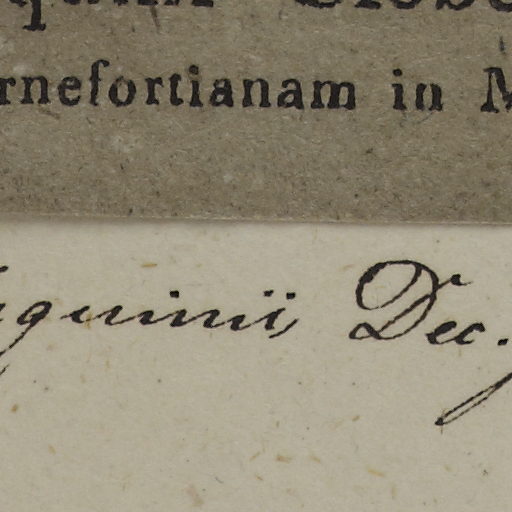 rneſortianam in M
quinii Dec.